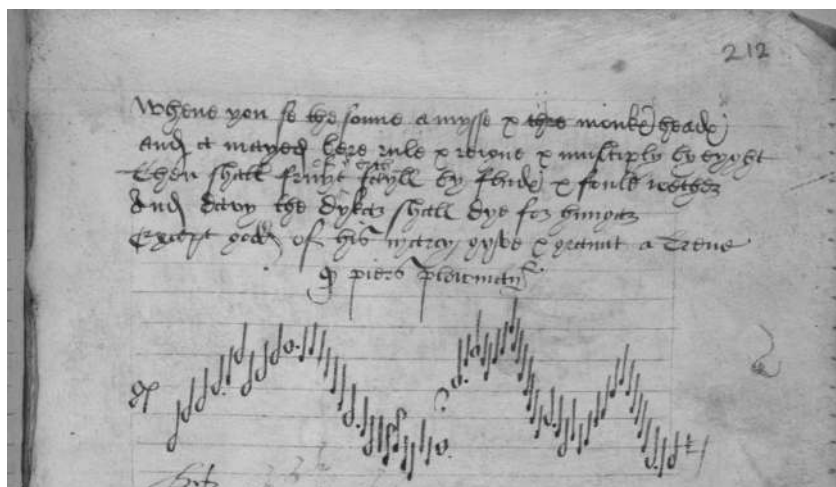 212
Whene you se the sonne amysse & thre monkes heades
And a mayed bere rule & reigne & multiply by eyght
of ye erth
Then shall fruyt fayll by fludes & foule wether
And davy the dykar shall dye for hungar
Except god of his marcy gyve & graunt a Treue
qd piers plowman